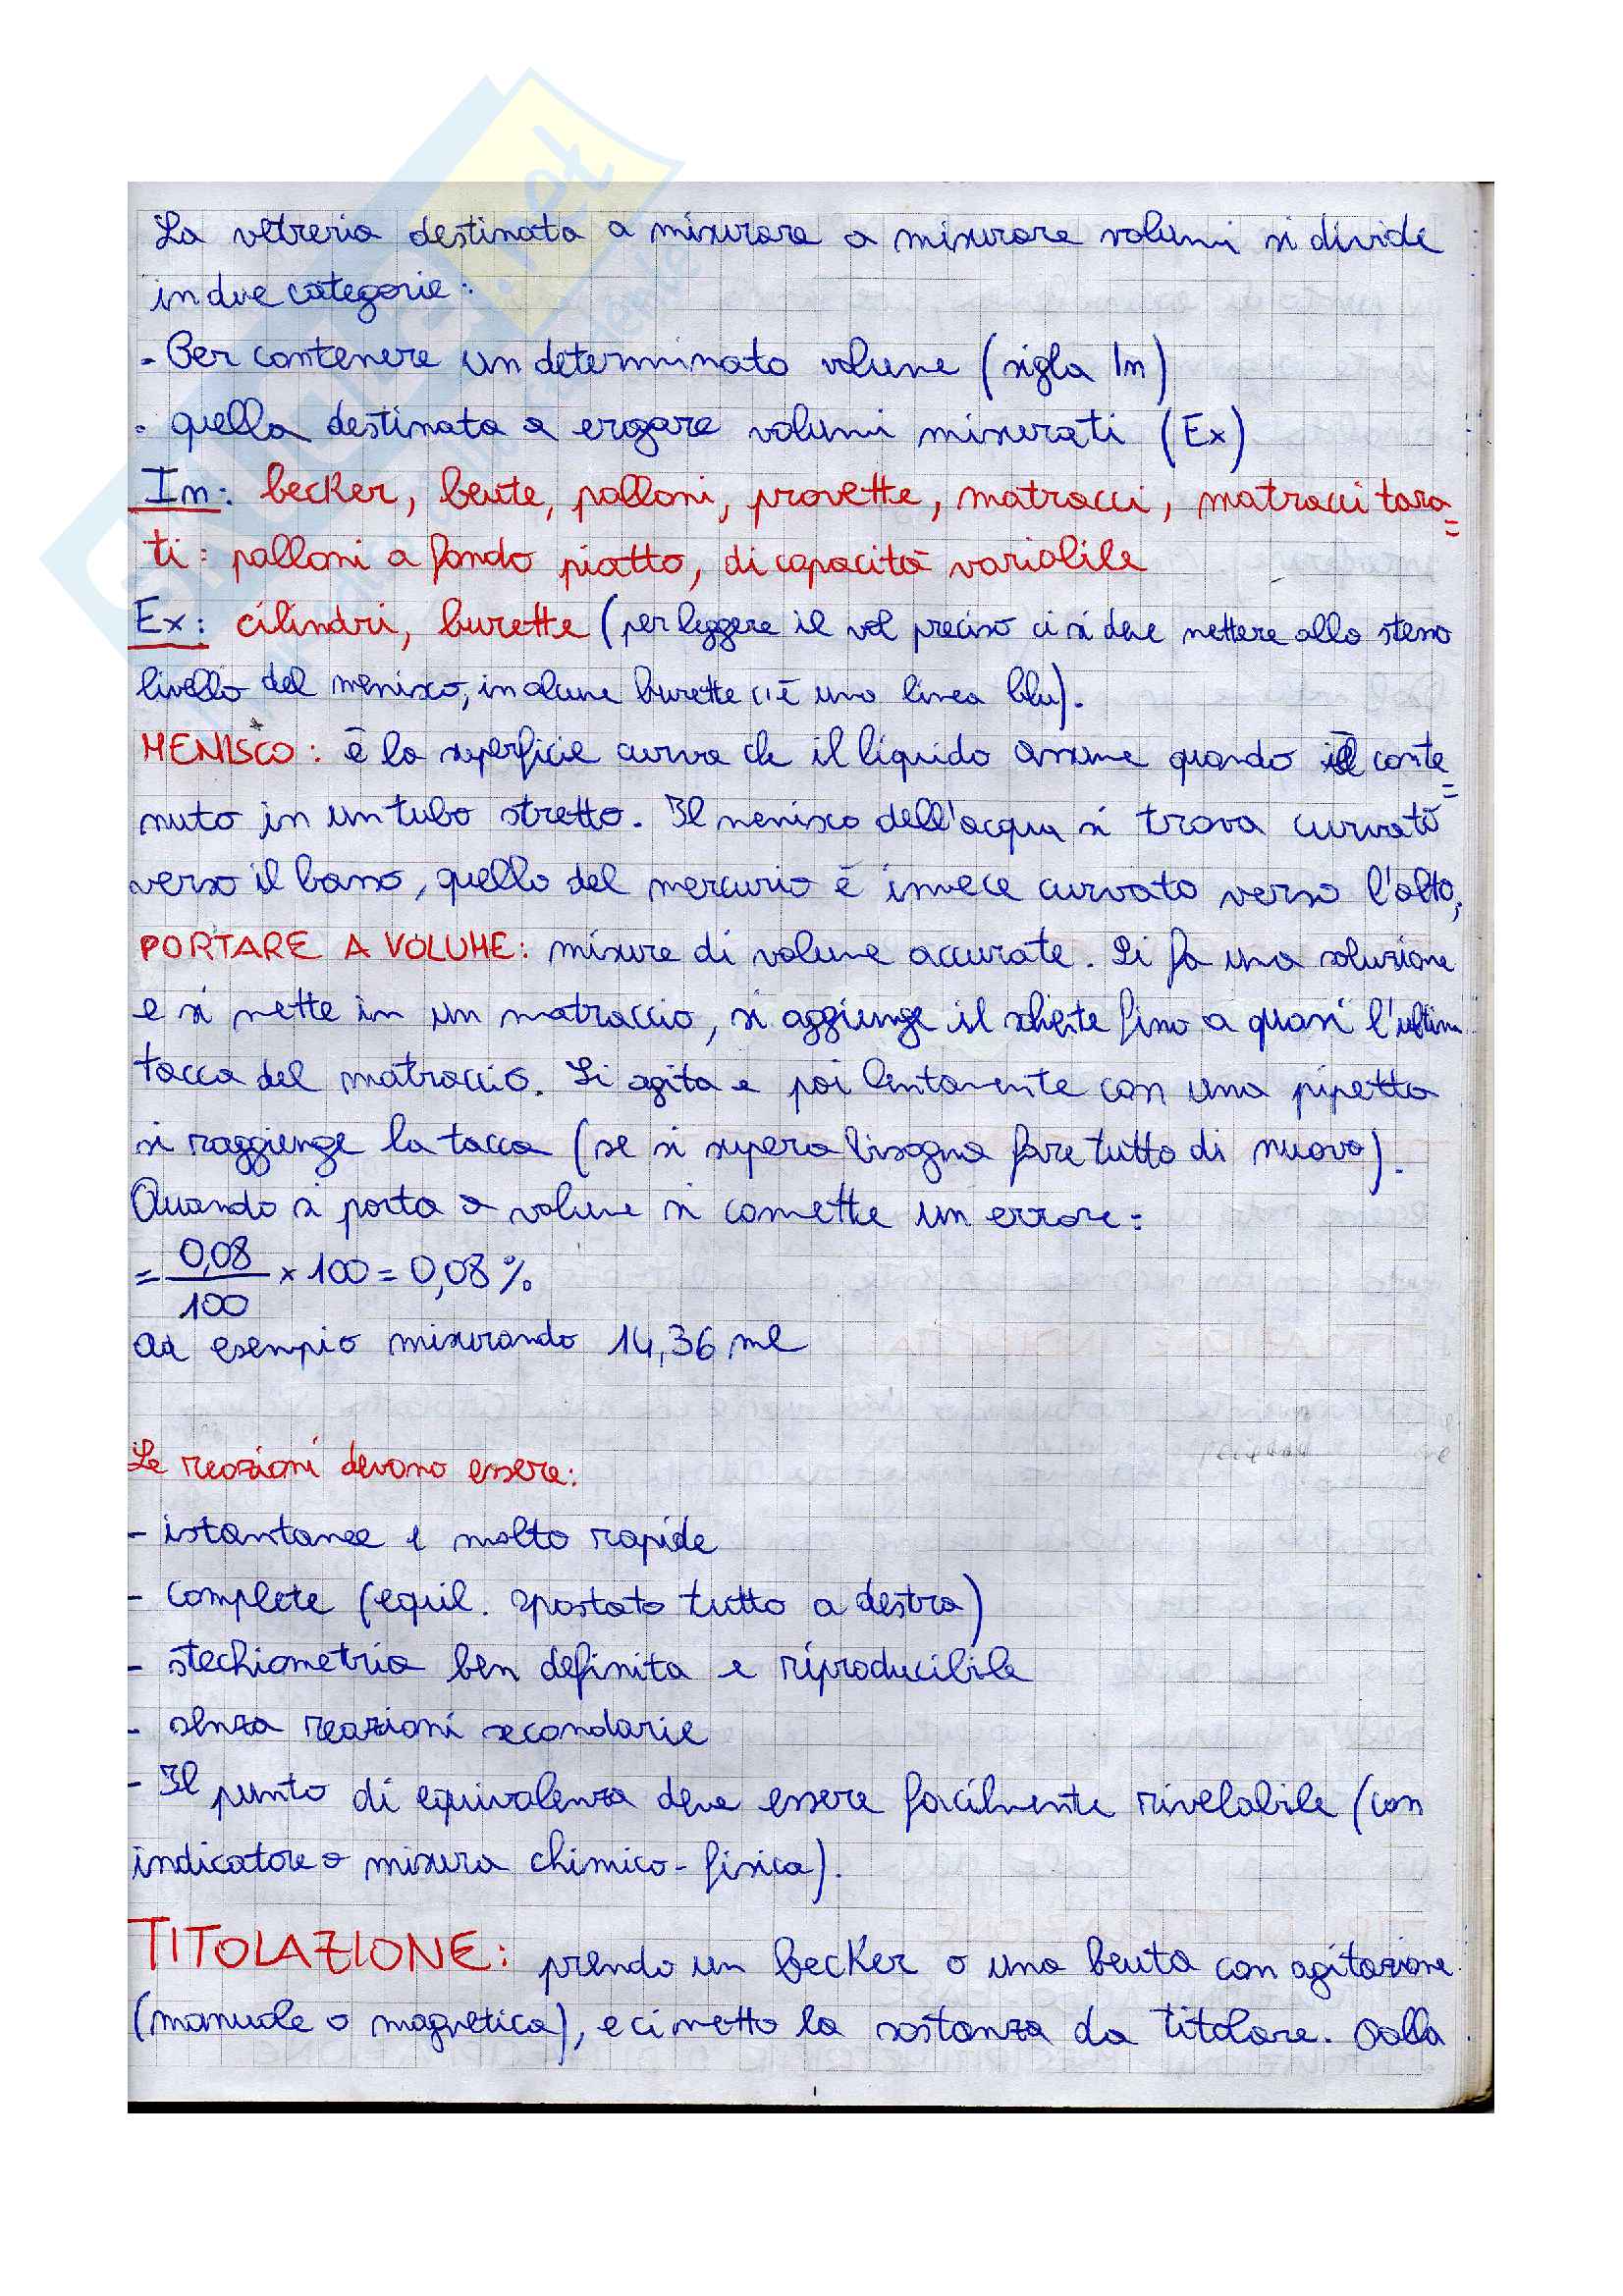 La vetreria destinata a misurare a misurare volumi si divide
in due categorie:
- Per contenere un determinato volume (sigla In)
- quella destinata a erogare volumi misurati (Ex)
In: becker, beute, palloni, provette, matracci, matracci tara=
ti: palloni a fondo piatto, di capacità variabile
Ex: cilindri, burette (per leggere il vol preciso ci si deve mettere allo stesso
livello del menisco, in alcune burette c'è una linea blu).
MENISCO: è la superficie curva che il liquido assume quando è conte=
nuto in un tubo stretto. Il menisco dell'acqua si trova curvato
verso il basso, quello del mercurio è invece curvato verso l'alto,
PORTARE A VOLUME: misure di volume accurate. Si fa una soluzione
e si mette in un matraccio, si aggiunge il solvente fino a quasi l'ultima
tacca del matraccio. Si agita e poi lentamente con una pipetta
si raggiunge la tacca (se si supera bisogna fare tutto di nuovo).
Quando si porta a volume si comette un errore:
= 0,08/100 × 100 = 0,08 %
ad esempio misurando 14,36 ml
Le reazioni devono essere:
- istantanee e molto rapide
- complete (equil. spostato tutto a destra)
- stechiometria ben definita e riproducibile
- senza reazioni secondarie
- Il punto di equivalenza deve essere facilmente rivelabile (con
indicatore o misura chimico-fisica).
TITOLAZIONE: prendo un becker o una beuta con agitazione
(manuale o magnetica), e ci metto la sostanza da titolare. Dalla